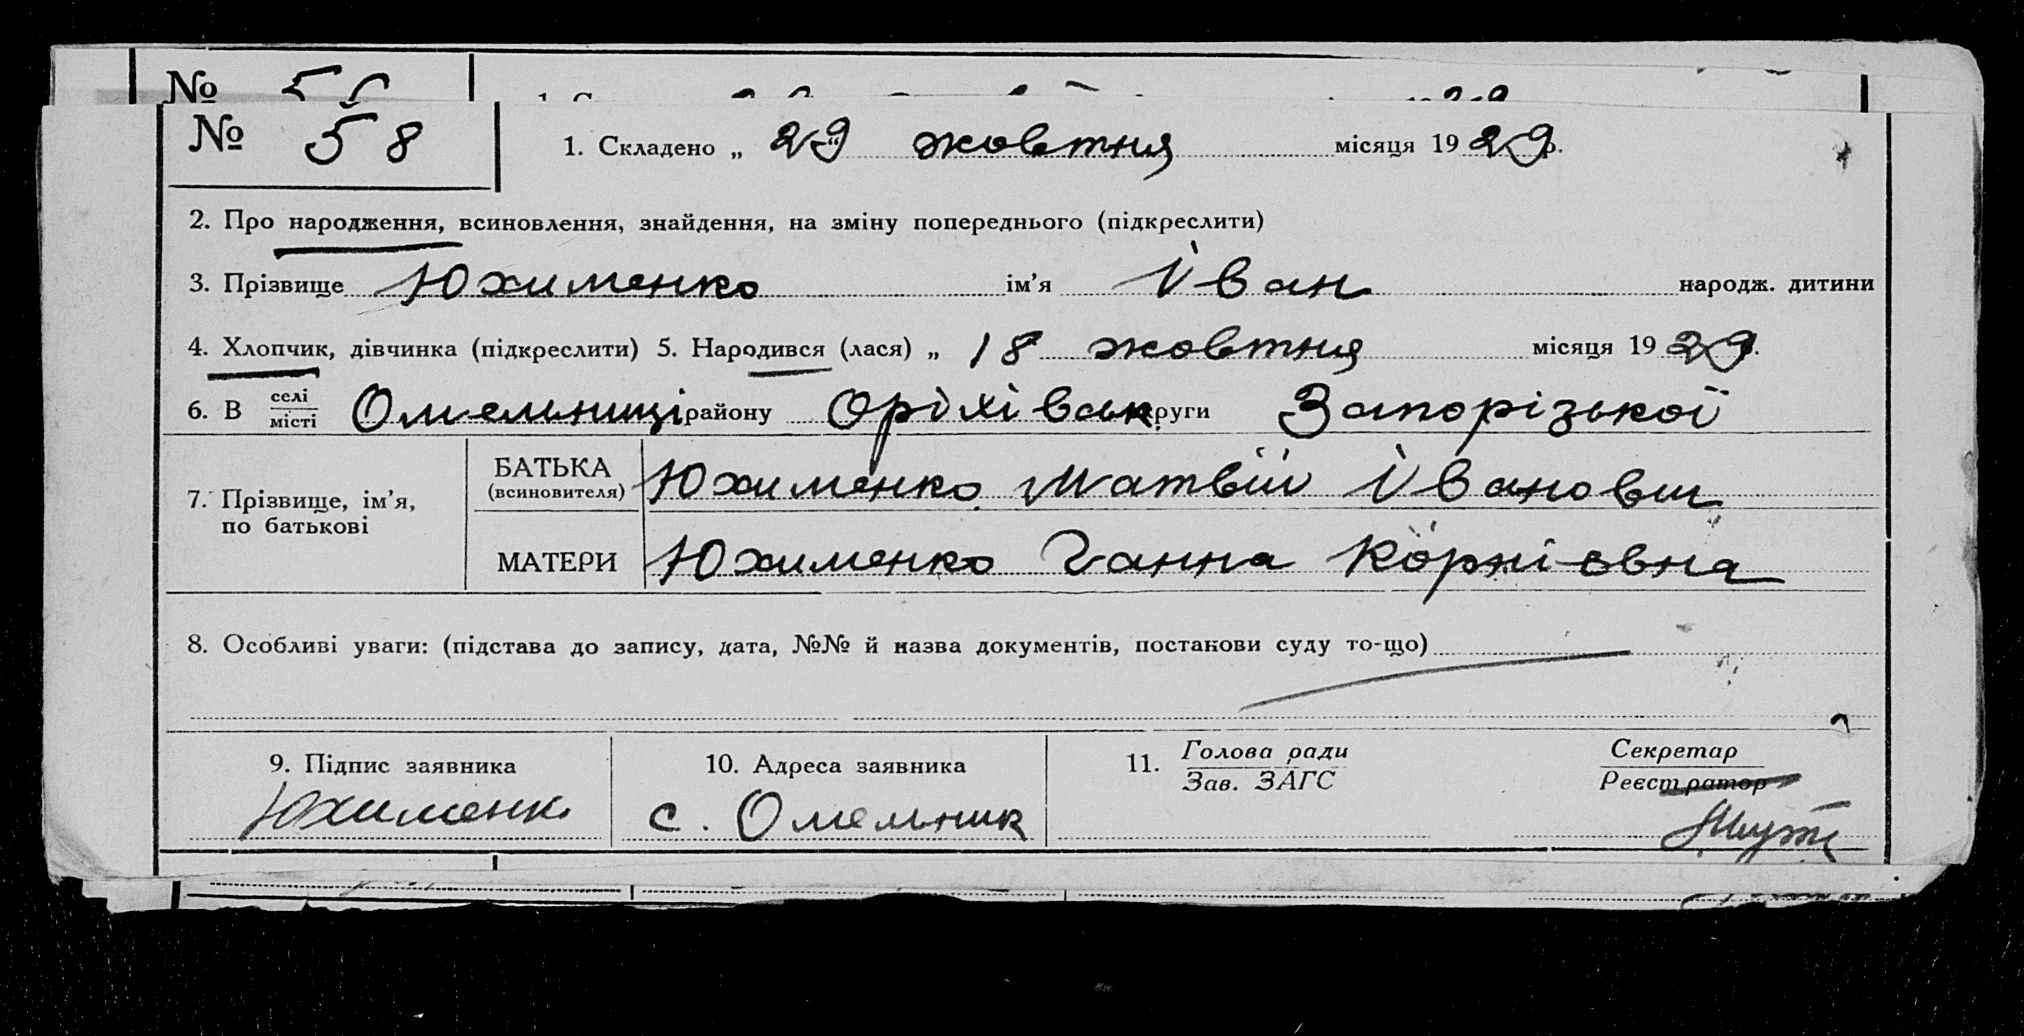 №
№ 58 1. Складено „ 29 " жовтня місяця 1929 р.
2. Про народження, всиновлення, знайдення, на зміну попереднього (підкреслити)
3. Прізвище Юхименко ім’я Іван народж. дитини
4. Хлопчик, дівчинка (підкреслити) 5. Народився (лася) „ 18 жовтня місяця 1929 р.
6. В селі/місті Омельниці району Оріхівськ округи Запорізької
7. Прізвище, ім’я, по батькові
БАТЬКА (всиновителя) Юхименко Матвій Іванович
МАТЕРИ Юхименко Ганна Корнієвна
8. Особливі уваги: (підстава до запису, дата, №№ й назва документів, постанови суду то-що)
9. Підпис заявника 10. Адреса заявника 11. Голова ради/Зав. ЗАГС Секретар/Реєстратор
Юхименко с. Омельник